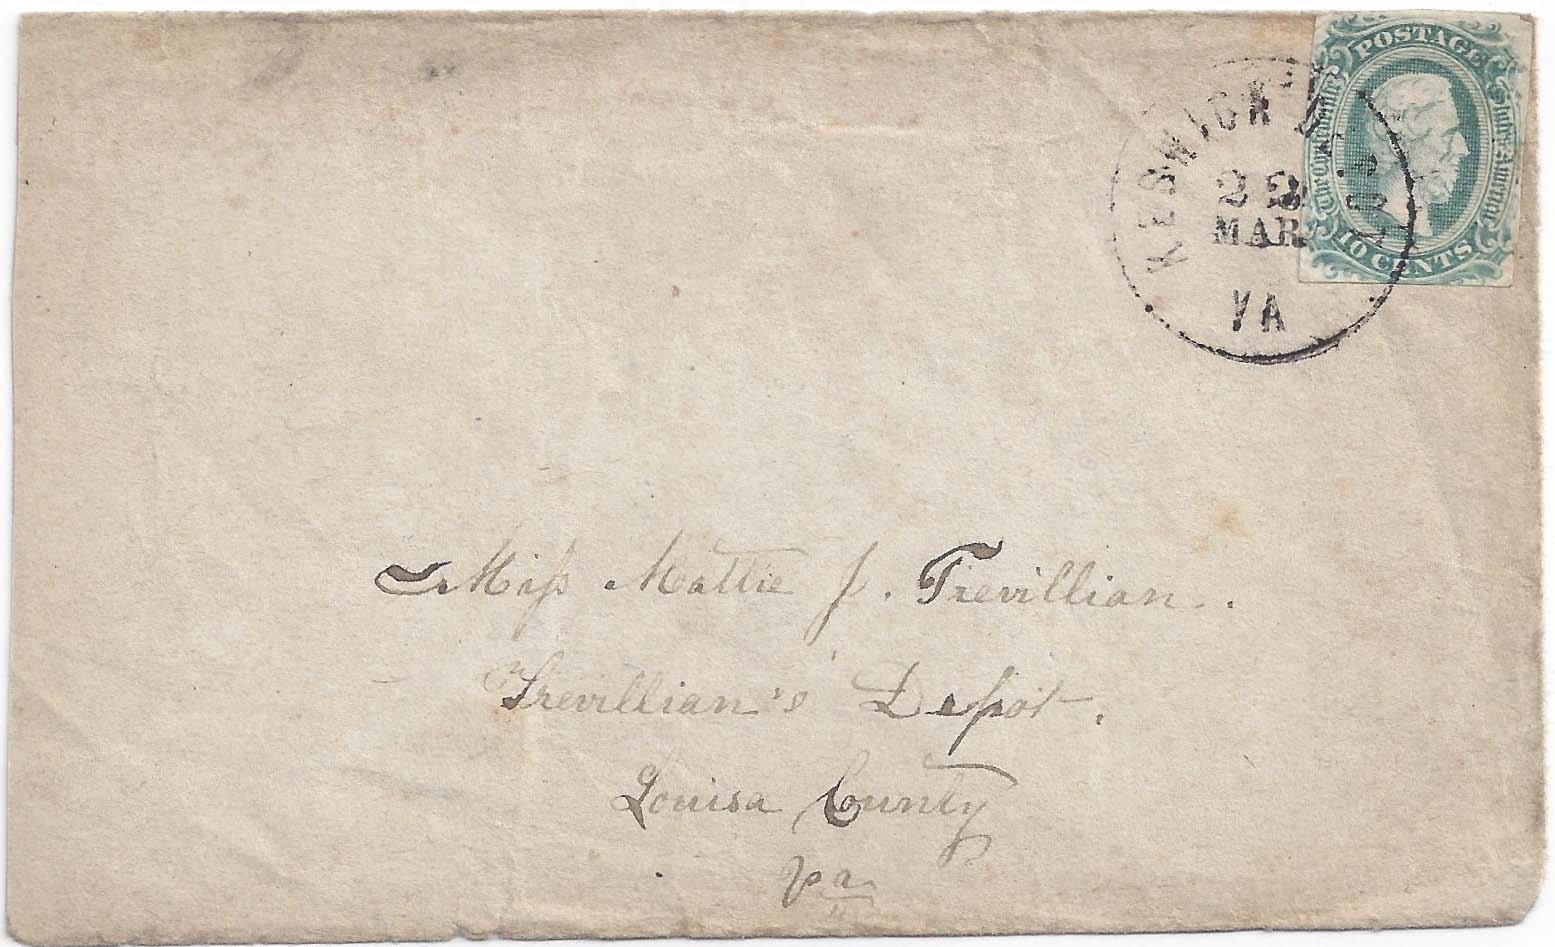 POSTAGE
The Confederate States of America
10 CENTS
KESWICK DEPOT
22
MAR
VA
Miss Mattie J. Trevillian.
Trevillian's Depot.
Louisa County
Va